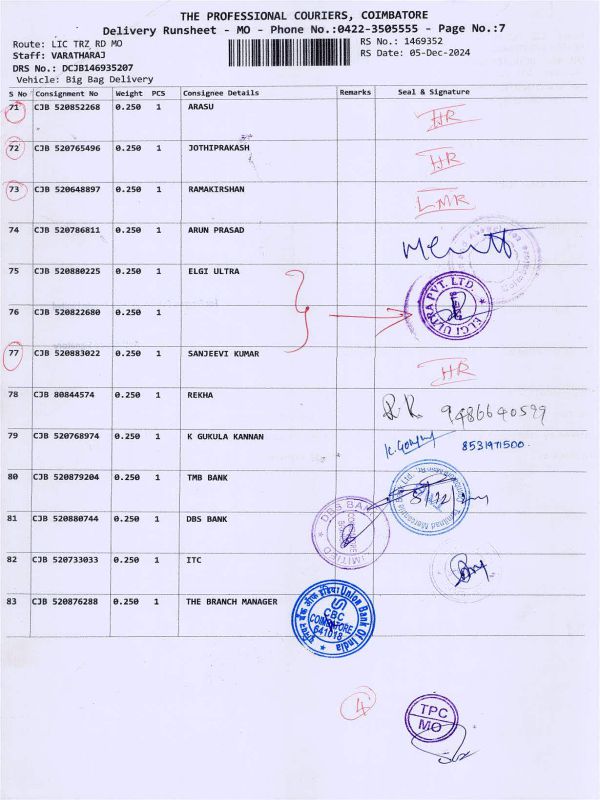 THE PROFESSIONAL COURIERS, COIMBATORE
Delivery Runsheet - MO - Phone No.:0422-3505555 - Page No.:7
Route: LIC TRZ RD MO
RS No.: 1469352
Staff: VARATHARAJ
RS Date: 05-Dec-2024
DRS No.: DCJB146935207
Vehicle: Big Bag Delivery
S No Consignment No Weight PCS Consignee Details Remarks Seal & Signature
71 CJB 520852268 0.250 1 ARASU HR
72 CJB 520765496 0.250 1 JOTHIPRAKASH HR
73 CJB 520648897 0.250 1 RAMAKIRSHAN LMR
74 CJB 520786811 0.250 1 ARUN PRASAD
75 CJB 520880225 0.250 1 ELGI ULTRA
ELGI ULTRA PVT. LTD.
76 CJB 520822680 0.250 1
77 CJB 520883022 0.250 1 SANJEEVI KUMAR HR
78 CJB 80844574 0.250 1 REKHA
79 CJB 520768974 0.250 1 K GUKULA KANNAN 8531971500
80 CJB 520879204 0.250 1 TMB BANK
81 CJB 520880744 0.250 1 DBS BANK
DBS BANK LIMITED
82 CJB 520733033 0.250 1 ITC
83 CJB 520876288 0.250 1 THE BRANCH MANAGER
यूनियन बैंक ऑफ इंडिया Union Bank Of India
CBC
COIMBATORE
641018
4
TPC
MO